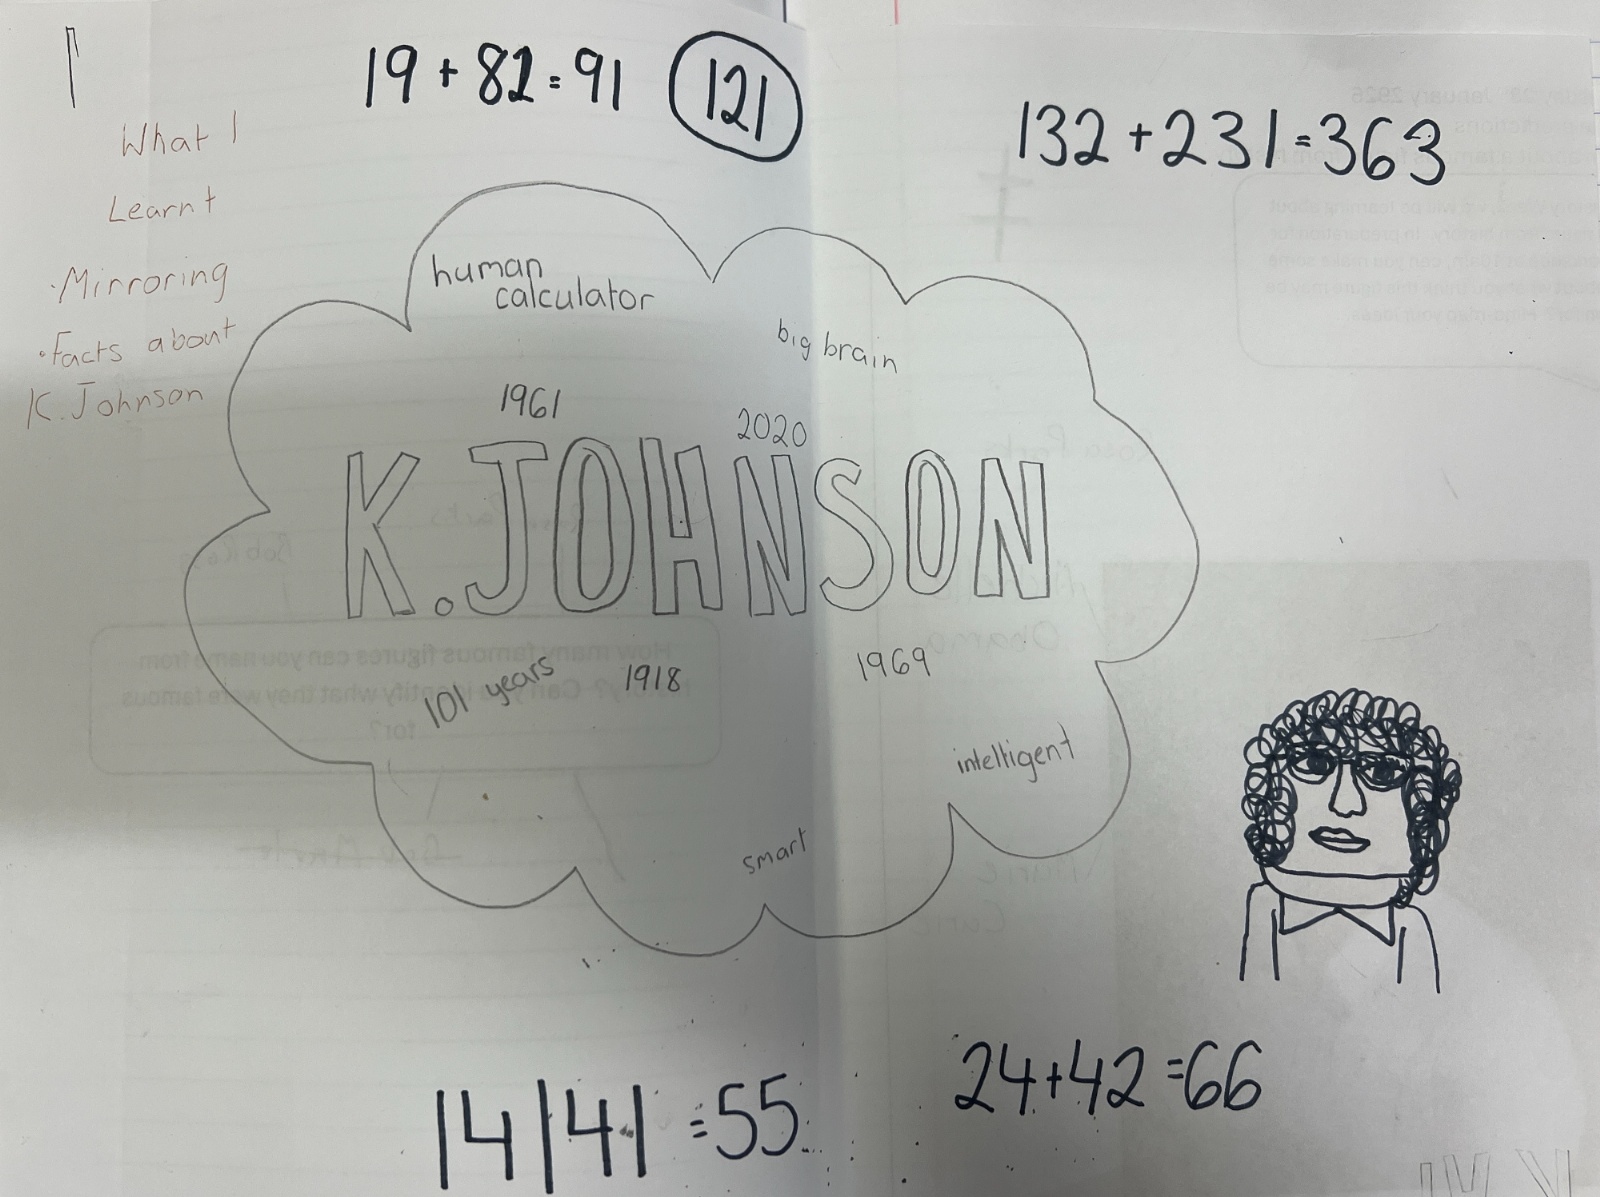 19 + 82 = 91 121
132 + 231 = 363
What I
Learnt
·Mirroring
·Facts about
K. Johnson
human
calculator
big brain
1961
2020
K.JOHNSON
101 years
1918
1969
intelligent
smart
14|41 = 55
24+42 = 66